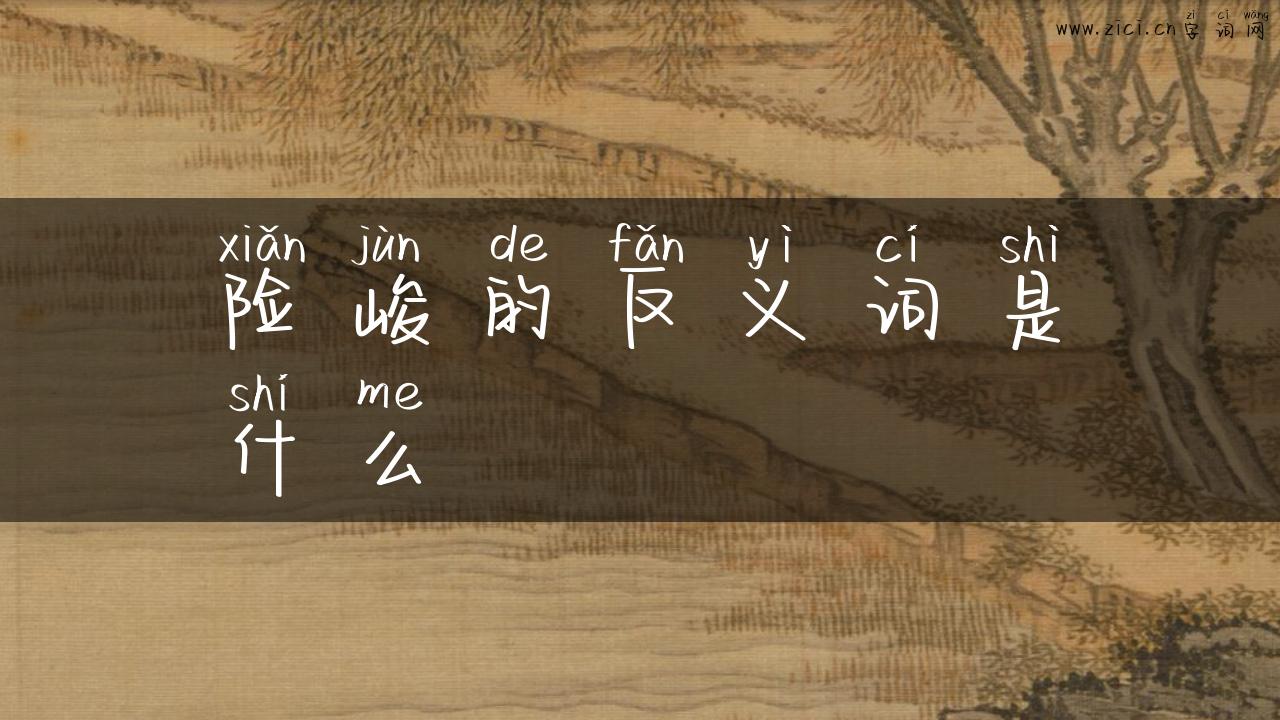 zì cí wǎng
www.zici.cn 字 词 网
xiǎn jùn de fǎn yì cí shì
险 峻 的 反 义 词 是
shí me
什 么